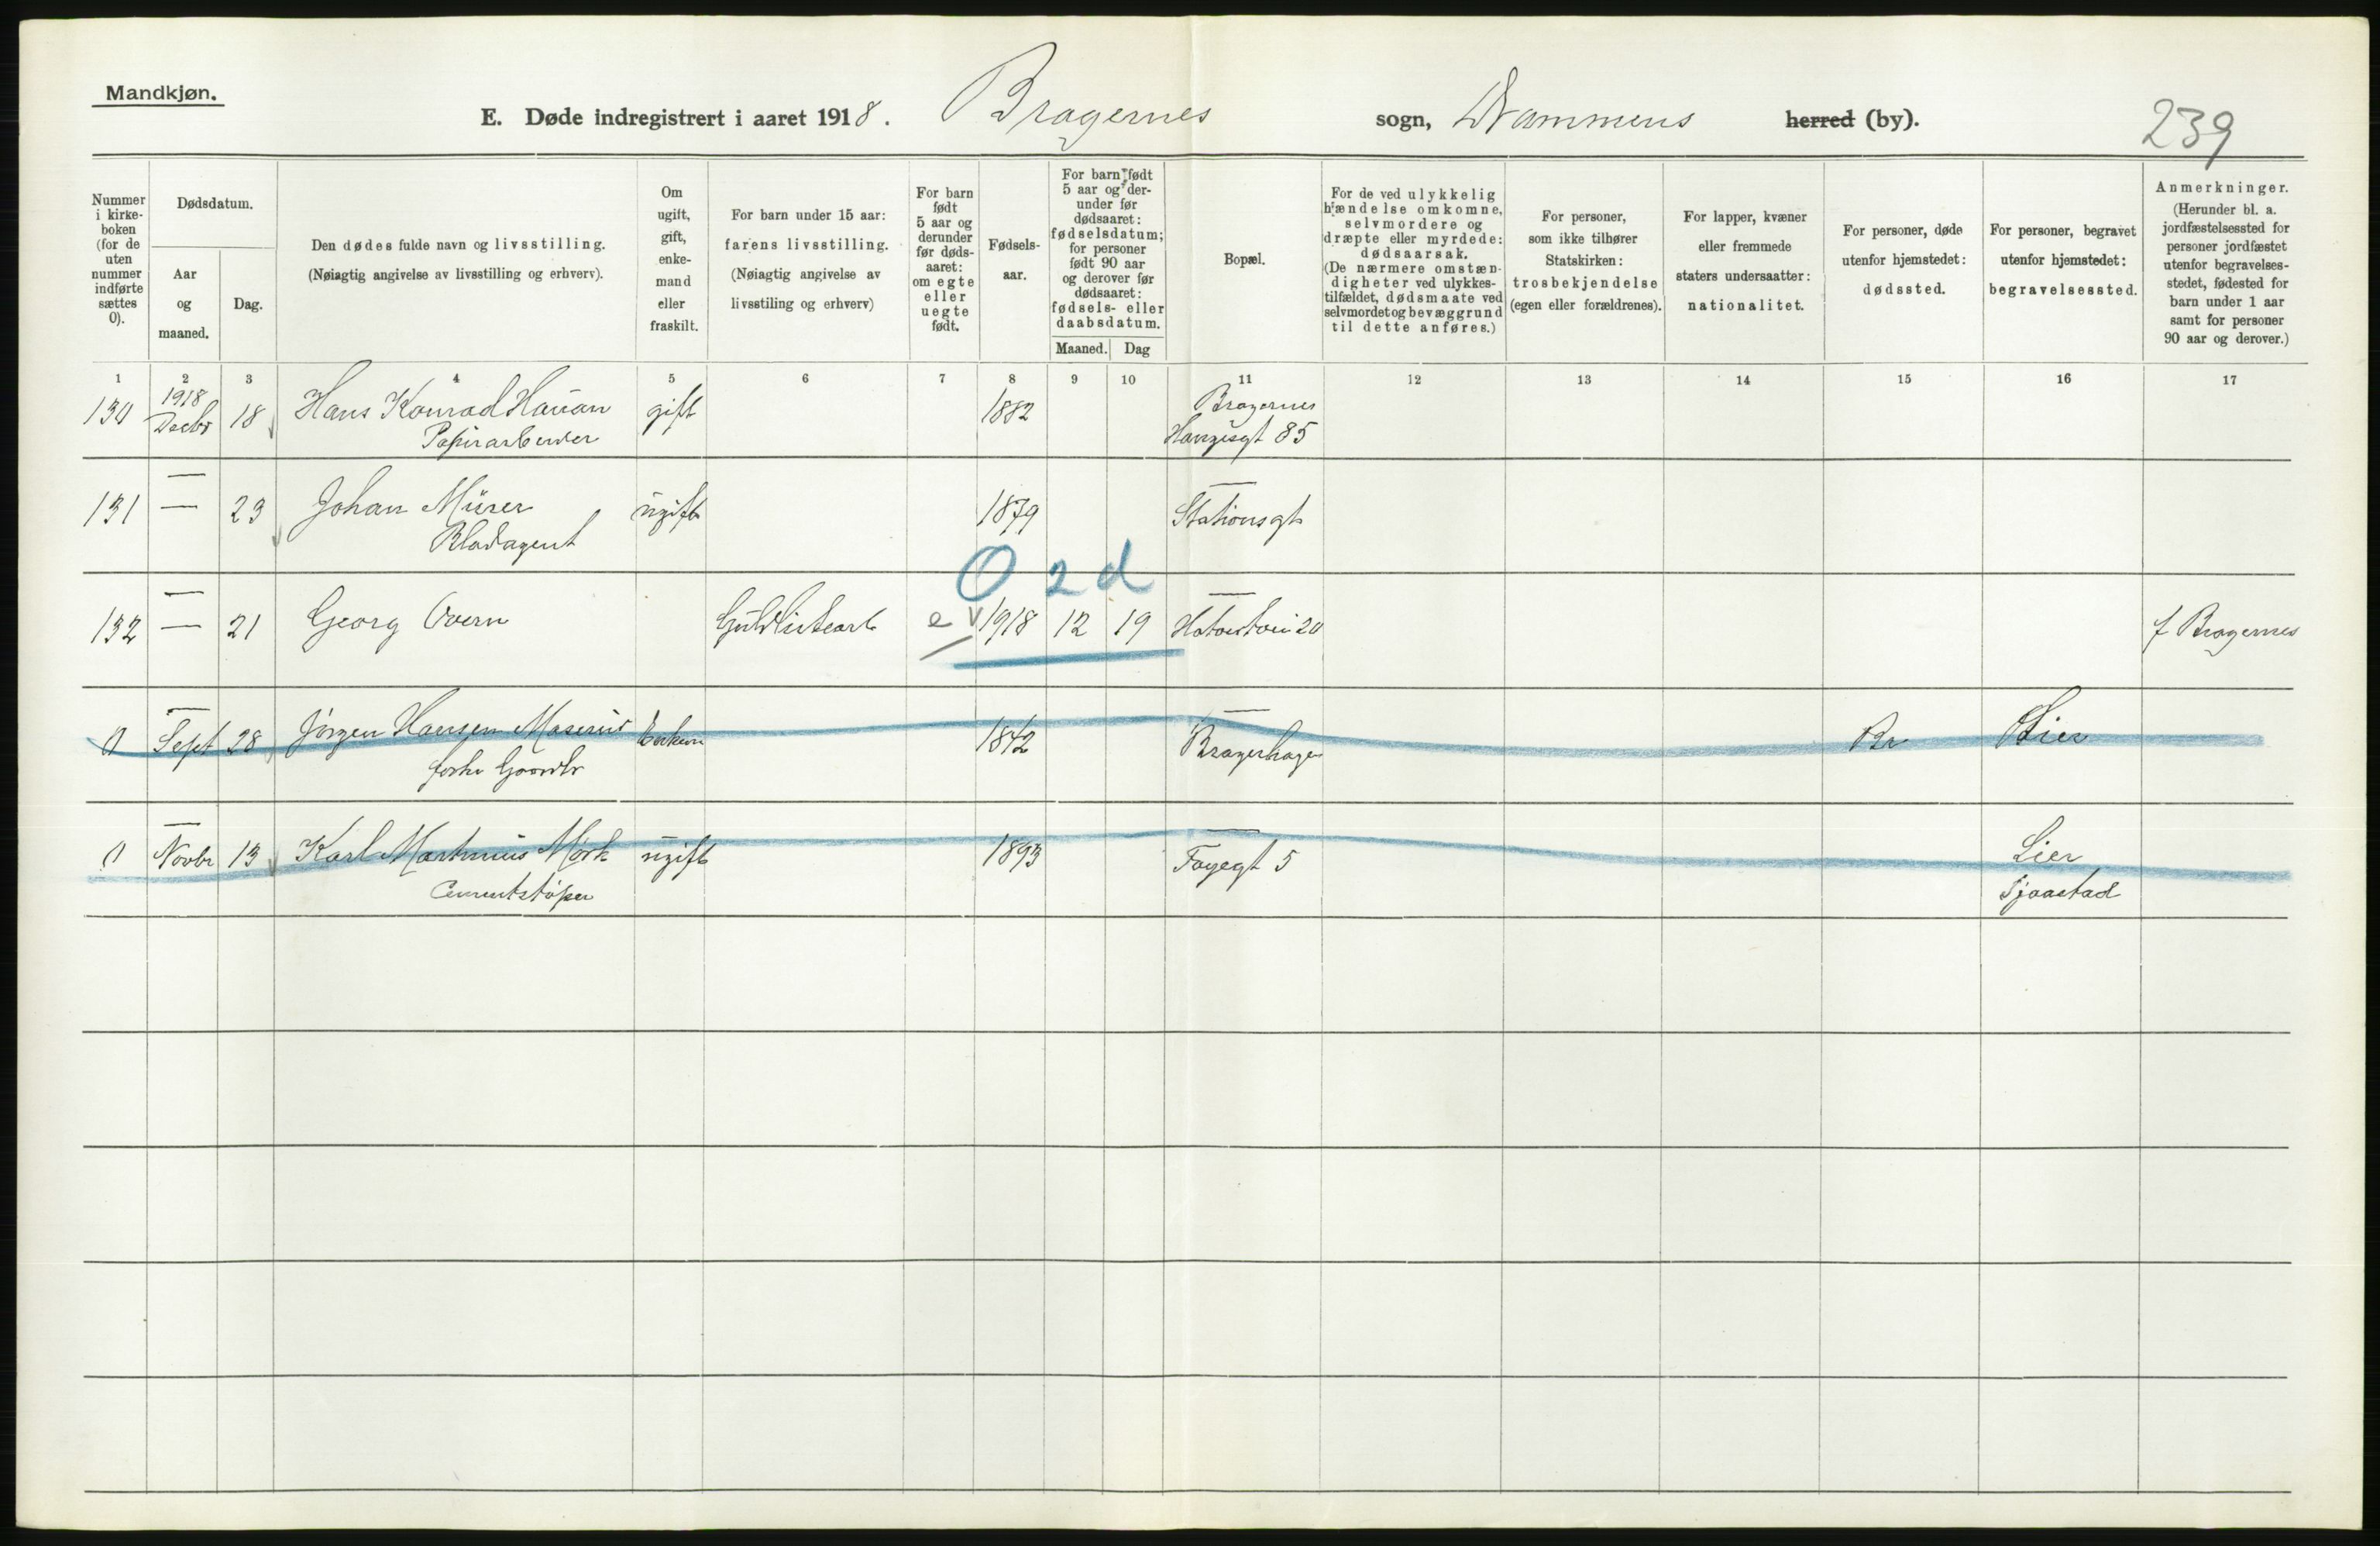 Mandkjøn.
E. Døde indregistrert i aaret 1918. Bragernes sogn, Drammens herred (by).
239
Nummer i kirke- boken (for de uten nummer indførte sættes 0).
Dødsdatum.
Aar og maaned.
Dag.
Den dødes fulde navn og livsstilling.
(Nøiagtig angivelse av livsstilling og erhverv).
Om ugift, gift, enke- mand eller fraskilt.
For barn under 15 aar: farens livsstilling. (Nøiagtig angivelse av livsstiling og erhverv)
For barn født 5 aar og derunder før døds- aaret: om egte eller uegte født.
Fødsels- aar.
For barn født 5 aar og der- under før dødsaaret: fødselsdatum; for personer født 90 aar og derover før dødsaaret: fødsels- eller daabsdatum.
Maaned. Dag
Bopæl.
For de ved ulykkelig hændelse omkomne, selvmordere og dræpte eller myrdede: dødsaarsak. (De nærmere omstæn- digheter ved ulykkes- tilfældet, dødsmaate ved selvmordet og bevæggrund til dette anføres.)
For personer, som ikke tilhører Statskirken: trosbekjendelse (egen eller forældrenes).
For lapper, kvæner eller fremmede staters undersaatter: nationalitet.
For personer, døde utenfor hjemstedet: dødssted.
For personer, begravet utenfor hjemstedet: begravelsessted.
Anmerkninger. (Herunder bl. a. jordfæstelsessted for personer jordfæstet utenfor begravelses- stedet, fødested for barn under 1 aar samt for personer 90 aar og derover.)
1 2 3 4 5 6 7 8 9 10 11 12 13 14 15 16 17
130 1918 Decbr 18 Hans Konrad Hauan gift 1882 Bragernes
Papirarbeider Haugesgt 85
131 — — 23 Johan Mürer ugift 1879 — Stationsgt
Bladagent
0 2 d
132 — — 21 Georg Overn Guldlistearb e v 1918 12 19 — 20 f Bragernes
0 — Sept 28 Jörgen Hansen Maserud Enkem 1842 — Bragerhagen Br Lier
forhv Gaardbr
0 — Novbr 13 Karl Martinius Mörk ugift 1893 — Fayegt 5 Lier
Cementstöper Sjaastad